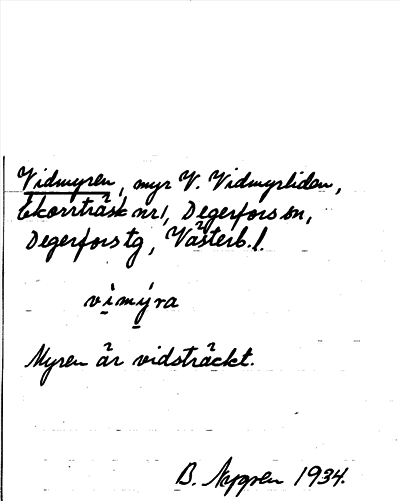 Vidmyren, myr V. Vidmyrlidan,
Ekorrträsk nr 1, Degerfors sn,
Degerfors tg, Västerb. l.
vìmýra
Myren är vidsträckt.
B. Nygren 1934.